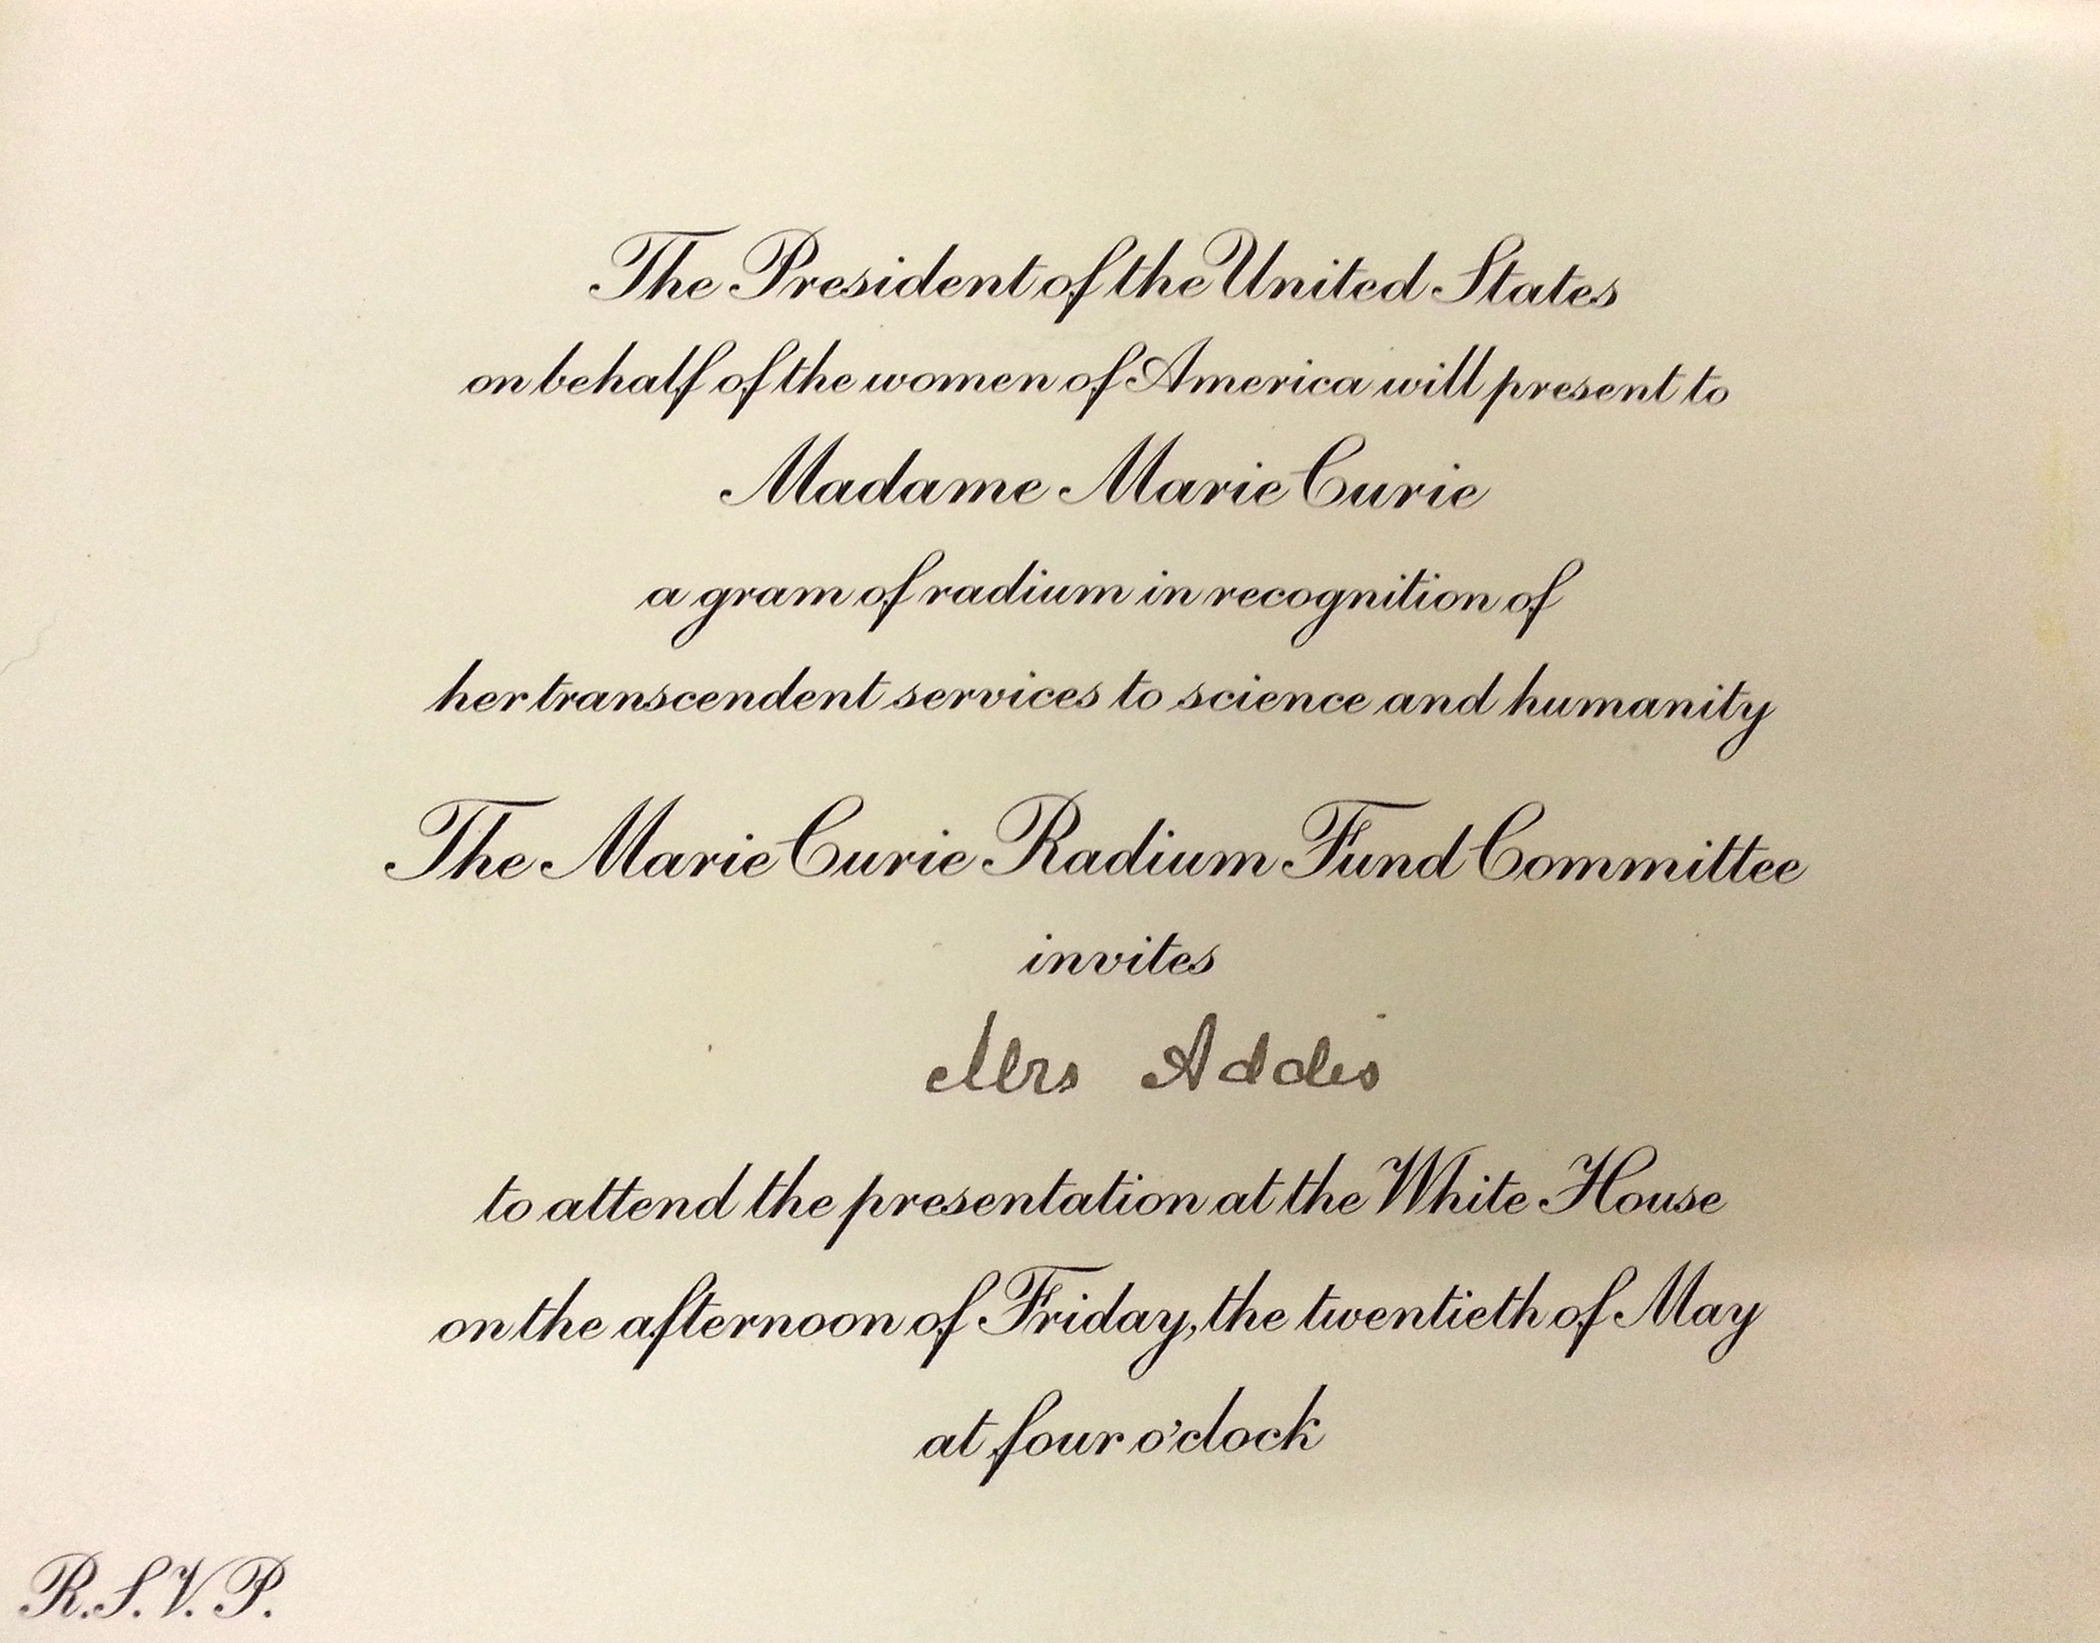 The President of the United States
on behalf of the women of America will present to
Madame Marie Curie
a gram of radium in recognition of
her transcendent services to science and humanity
The Marie Curie Radium Fund Committee
invites
Mrs Addis
to attend the presentation at the White House
on the afternoon of Friday, the twentieth of May
at four o'clock
R.S.V.P.